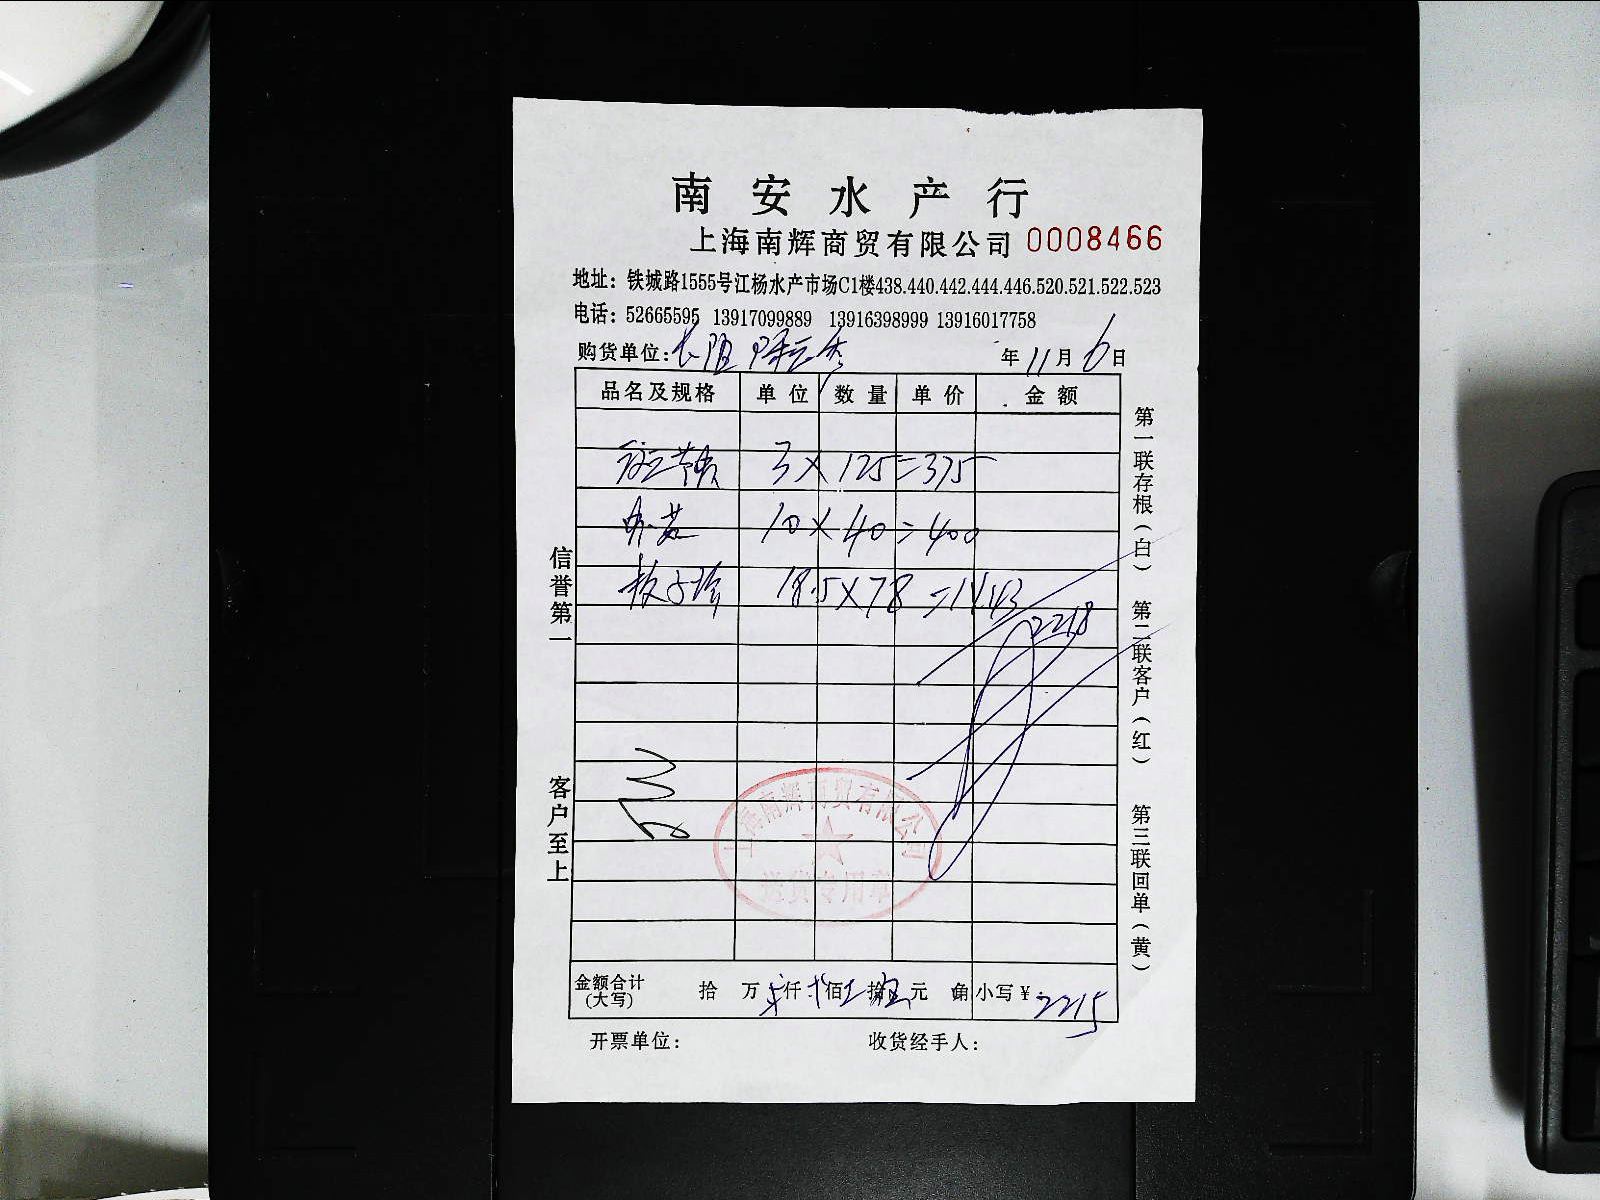 南安水产行
上海南辉商贸有限公司 0008466
地址：铁城路1555号江杨水产市场C1楼438.440.442.444.446.520.521.522.523
电话：52665595 13917099889 13916398999 13916017758
购货单位： 年 11 月 6 日
品名及规格 单位 数量 单价 金额
3 X 125 = 375
10 X 40 = 400
18.5 X 78 = 1443
2218
信誉第一
客户至上
第一联存根（白） 第二联客户（红） 第三联回单（黄）
上海南辉商贸有限公司
送货专用章
金额合计 拾 万 仟 佰 拾 元 角 小写￥：2215
（大写）
开票单位： 收货经手人：